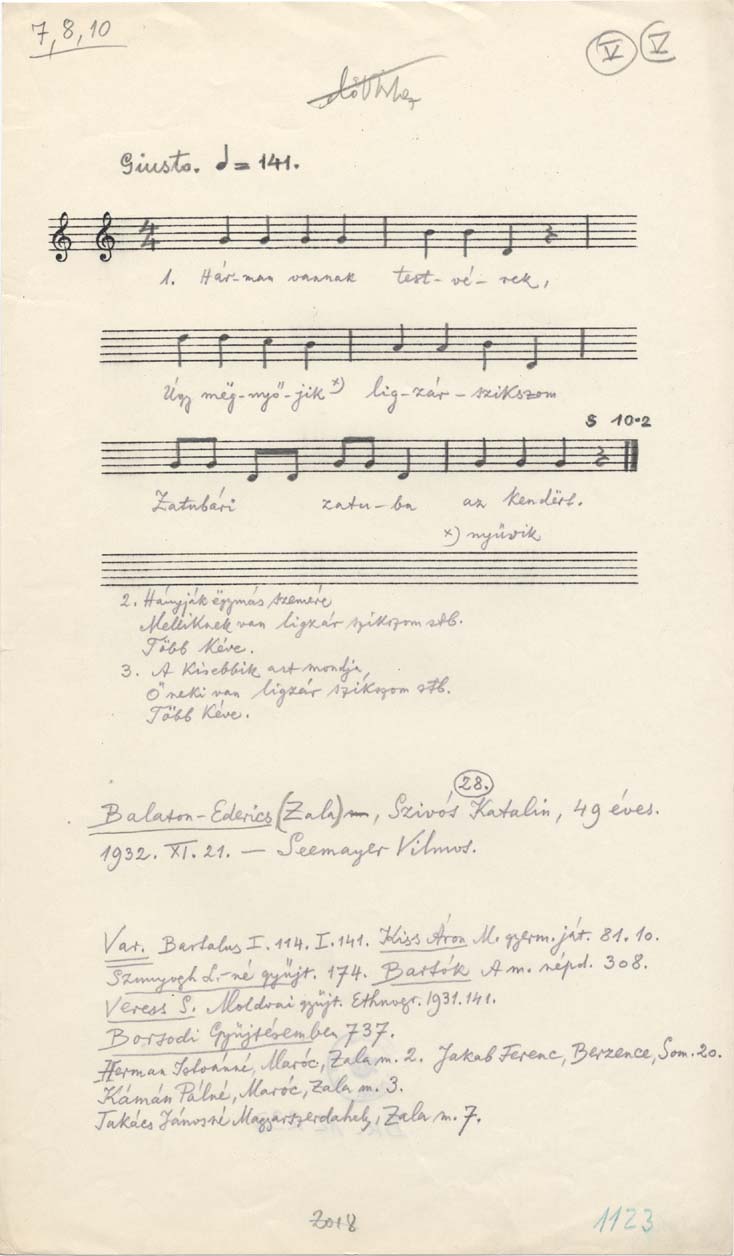 7, 8, 10
V V
Giusto. ♩ = 141.
4/4
1. Hár-man vannak test-vé-rek,
Úgy mëg-nyő-jik x) lig-zár-szikszom
S 10·2
Zatubári zatu-ba az kendërt.
x) nyüvik
2. Hányják ëgymás szemére
Melliknek van ligzár szikszom stb.
Több kéve.
3. A kisebbik azt mondja,
Ő neki van ligzár szikszom stb.
Több kéve.
28.
Balaton-Ederics (Zala), Szivós Katalin, 49 éves.
1932. XI. 21. — Seemayer Vilmos.
Var. Bartalus I. 114. I. 141. Kiss Áron M. gyerm. ját. 81. 10.
Szunyogh L-né gyüjt. 174. Bartók A m. népd. 308.
Veress S. Moldvai gyüjt. Ethnogr. 1931. 141.
Borsodi Gyüjtésemben 737.
Herman Istvánné, Maróc, Zala m. 2. Jakab Ferenc, Berzence, Som. 20.
Kámán Pálné, Maróc, Zala m. 3.
Takács Jánosné Magyarszerdahely, Zala m. 7.
2018
1123